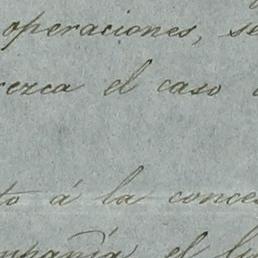 operaciones, se
rezca el caso
to á la conce
mpañía el